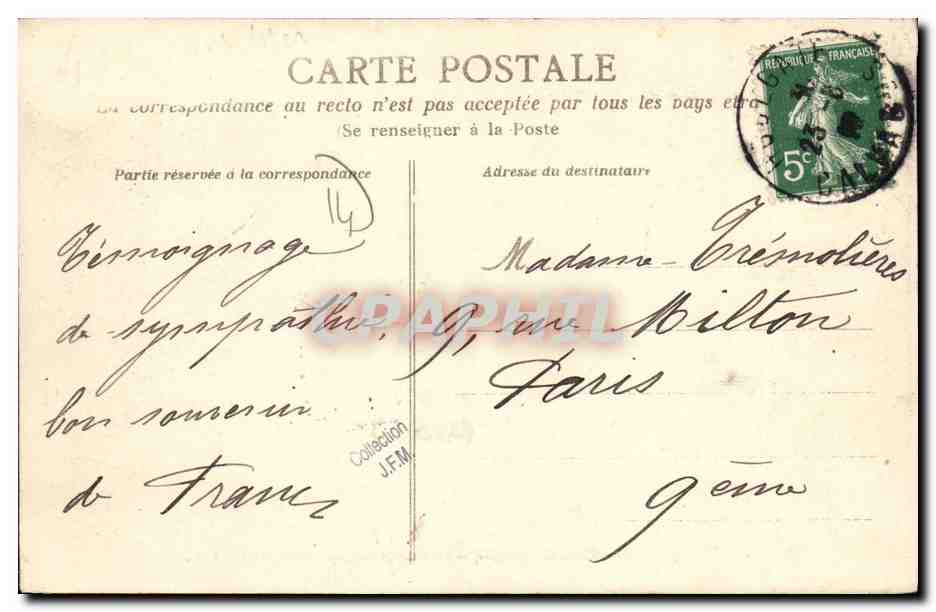 CARTE POSTALE
La correspondance au recto n'est pas acceptée par tous les pays étra
(Se renseigner à la Poste
Partie réservée à la correspondance
Adresse du destinataire
14
REPUBLIQUE FRANÇAISE
5c
23
CALVA
Témoignage
de sympathie,
bon souvenir
de
Madame Trémolières
9, rue Milton
Paris
9ème
CPAPHIL
Collection
J.F.M.